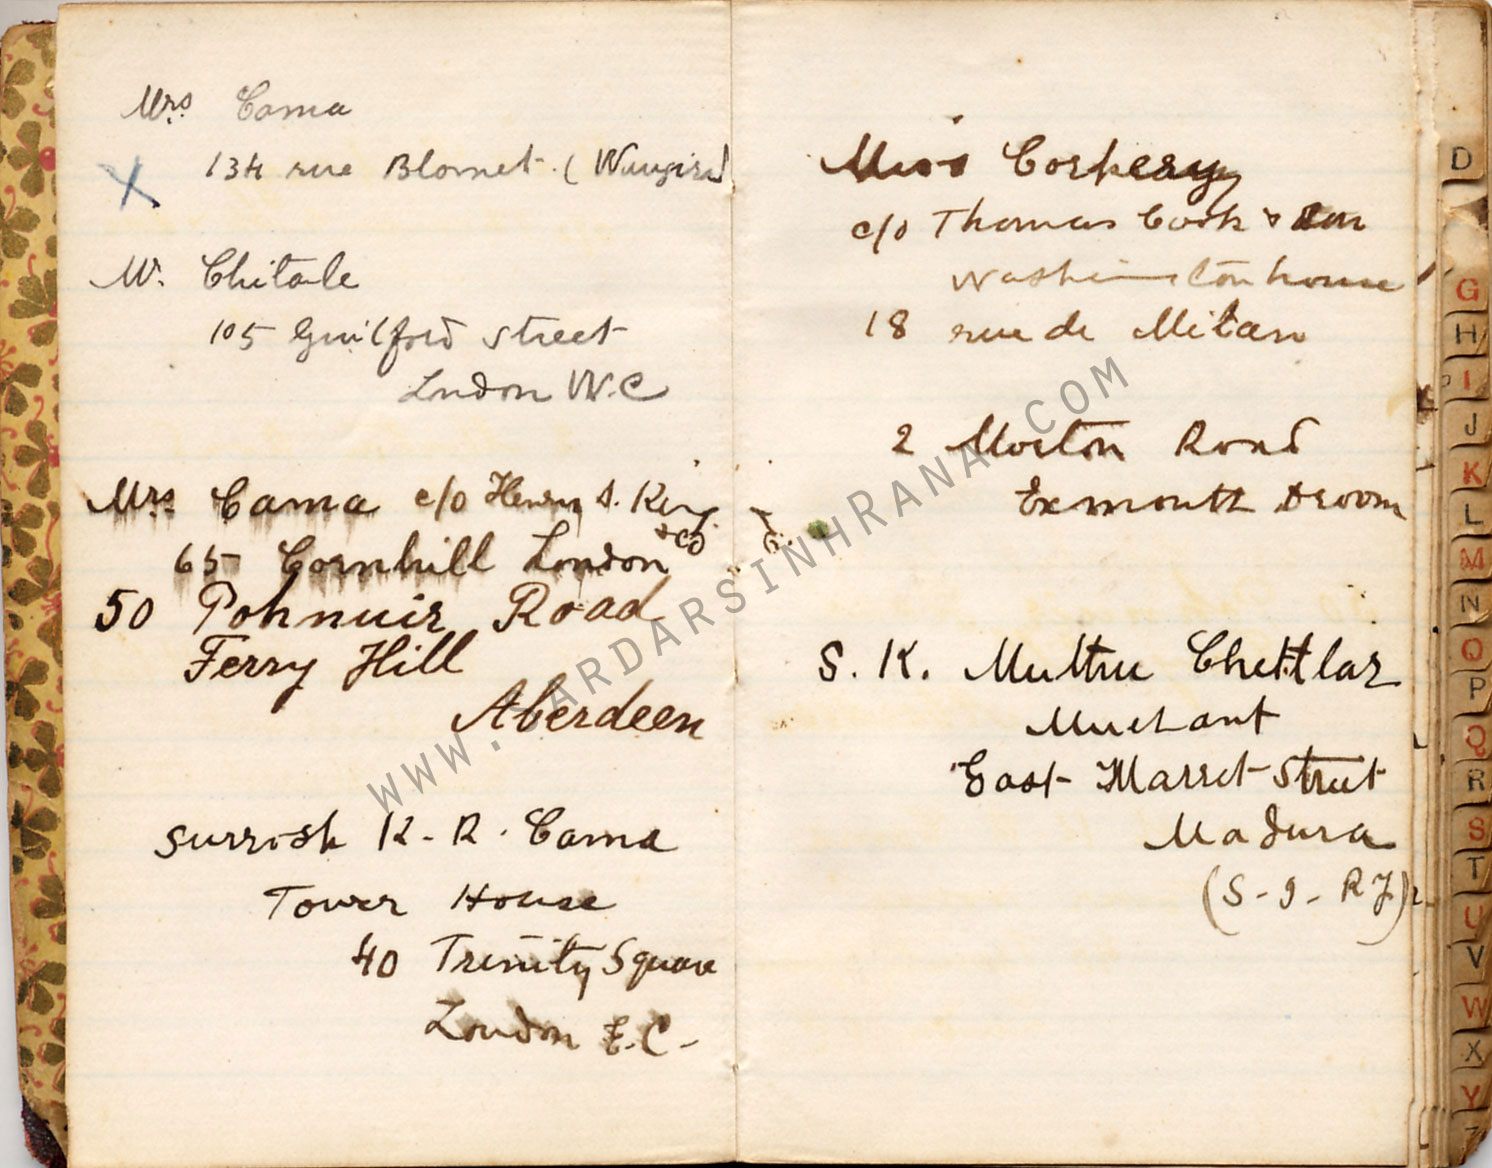 Mrs Cama
134 rue Blomet (Waugirad
X
Mr. Chitale
105 Guilford Street
London W.C
Mrs Cama c/o Henry S. King
& Co
65 Cornhill London
50 Pohnuir Road
Ferry Hill
Aberdeen
Surrish K-R. Cama
Tower House
40 Trinity Square
London E.C-
Miss Corkery
c/o Thomas Cook & Son
Washington house
18 rue de Milan
2 Morton Road
Exmouth Devon
S. K. Muttu Chettiar
Merchant
East Marret Street
Madura
(S-I-RY)
D
G
H
I
J
K
L
M
N
O
P
Q
R
S
T
U
V
W
X
Y
Z
WWW.SARDARSINHRANA.COM